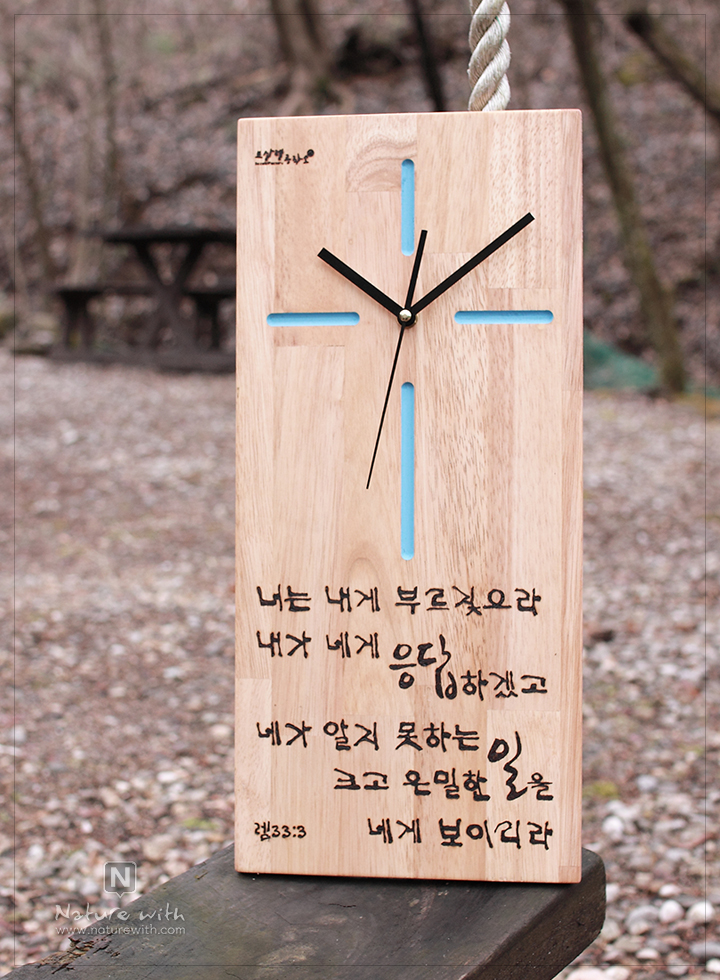 너는 내게 부르짖으라
내가 네게 응답하겠고
네가 알지 못하는
크고 은밀한 일을
렘33:3 네게 보이리라
N
Nature with
www.naturewith.com